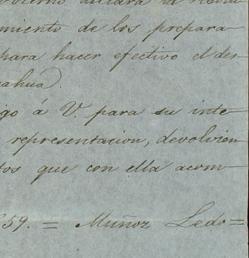 miento de los prepara
para hacer efectivo el des
ahua)
go á V. para su inte
representacion, devolvien
tos que con ella acom
59. = Muñoz Ledo =